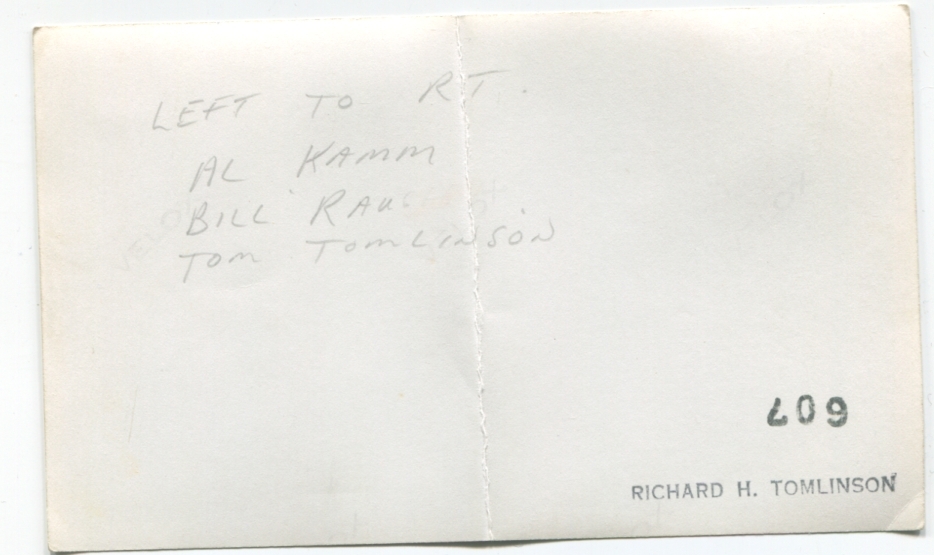 LEFT TO RT.
AL KAMM
BILL
TOM TOMLINSON
607
RICHARD H. TOMLINSON